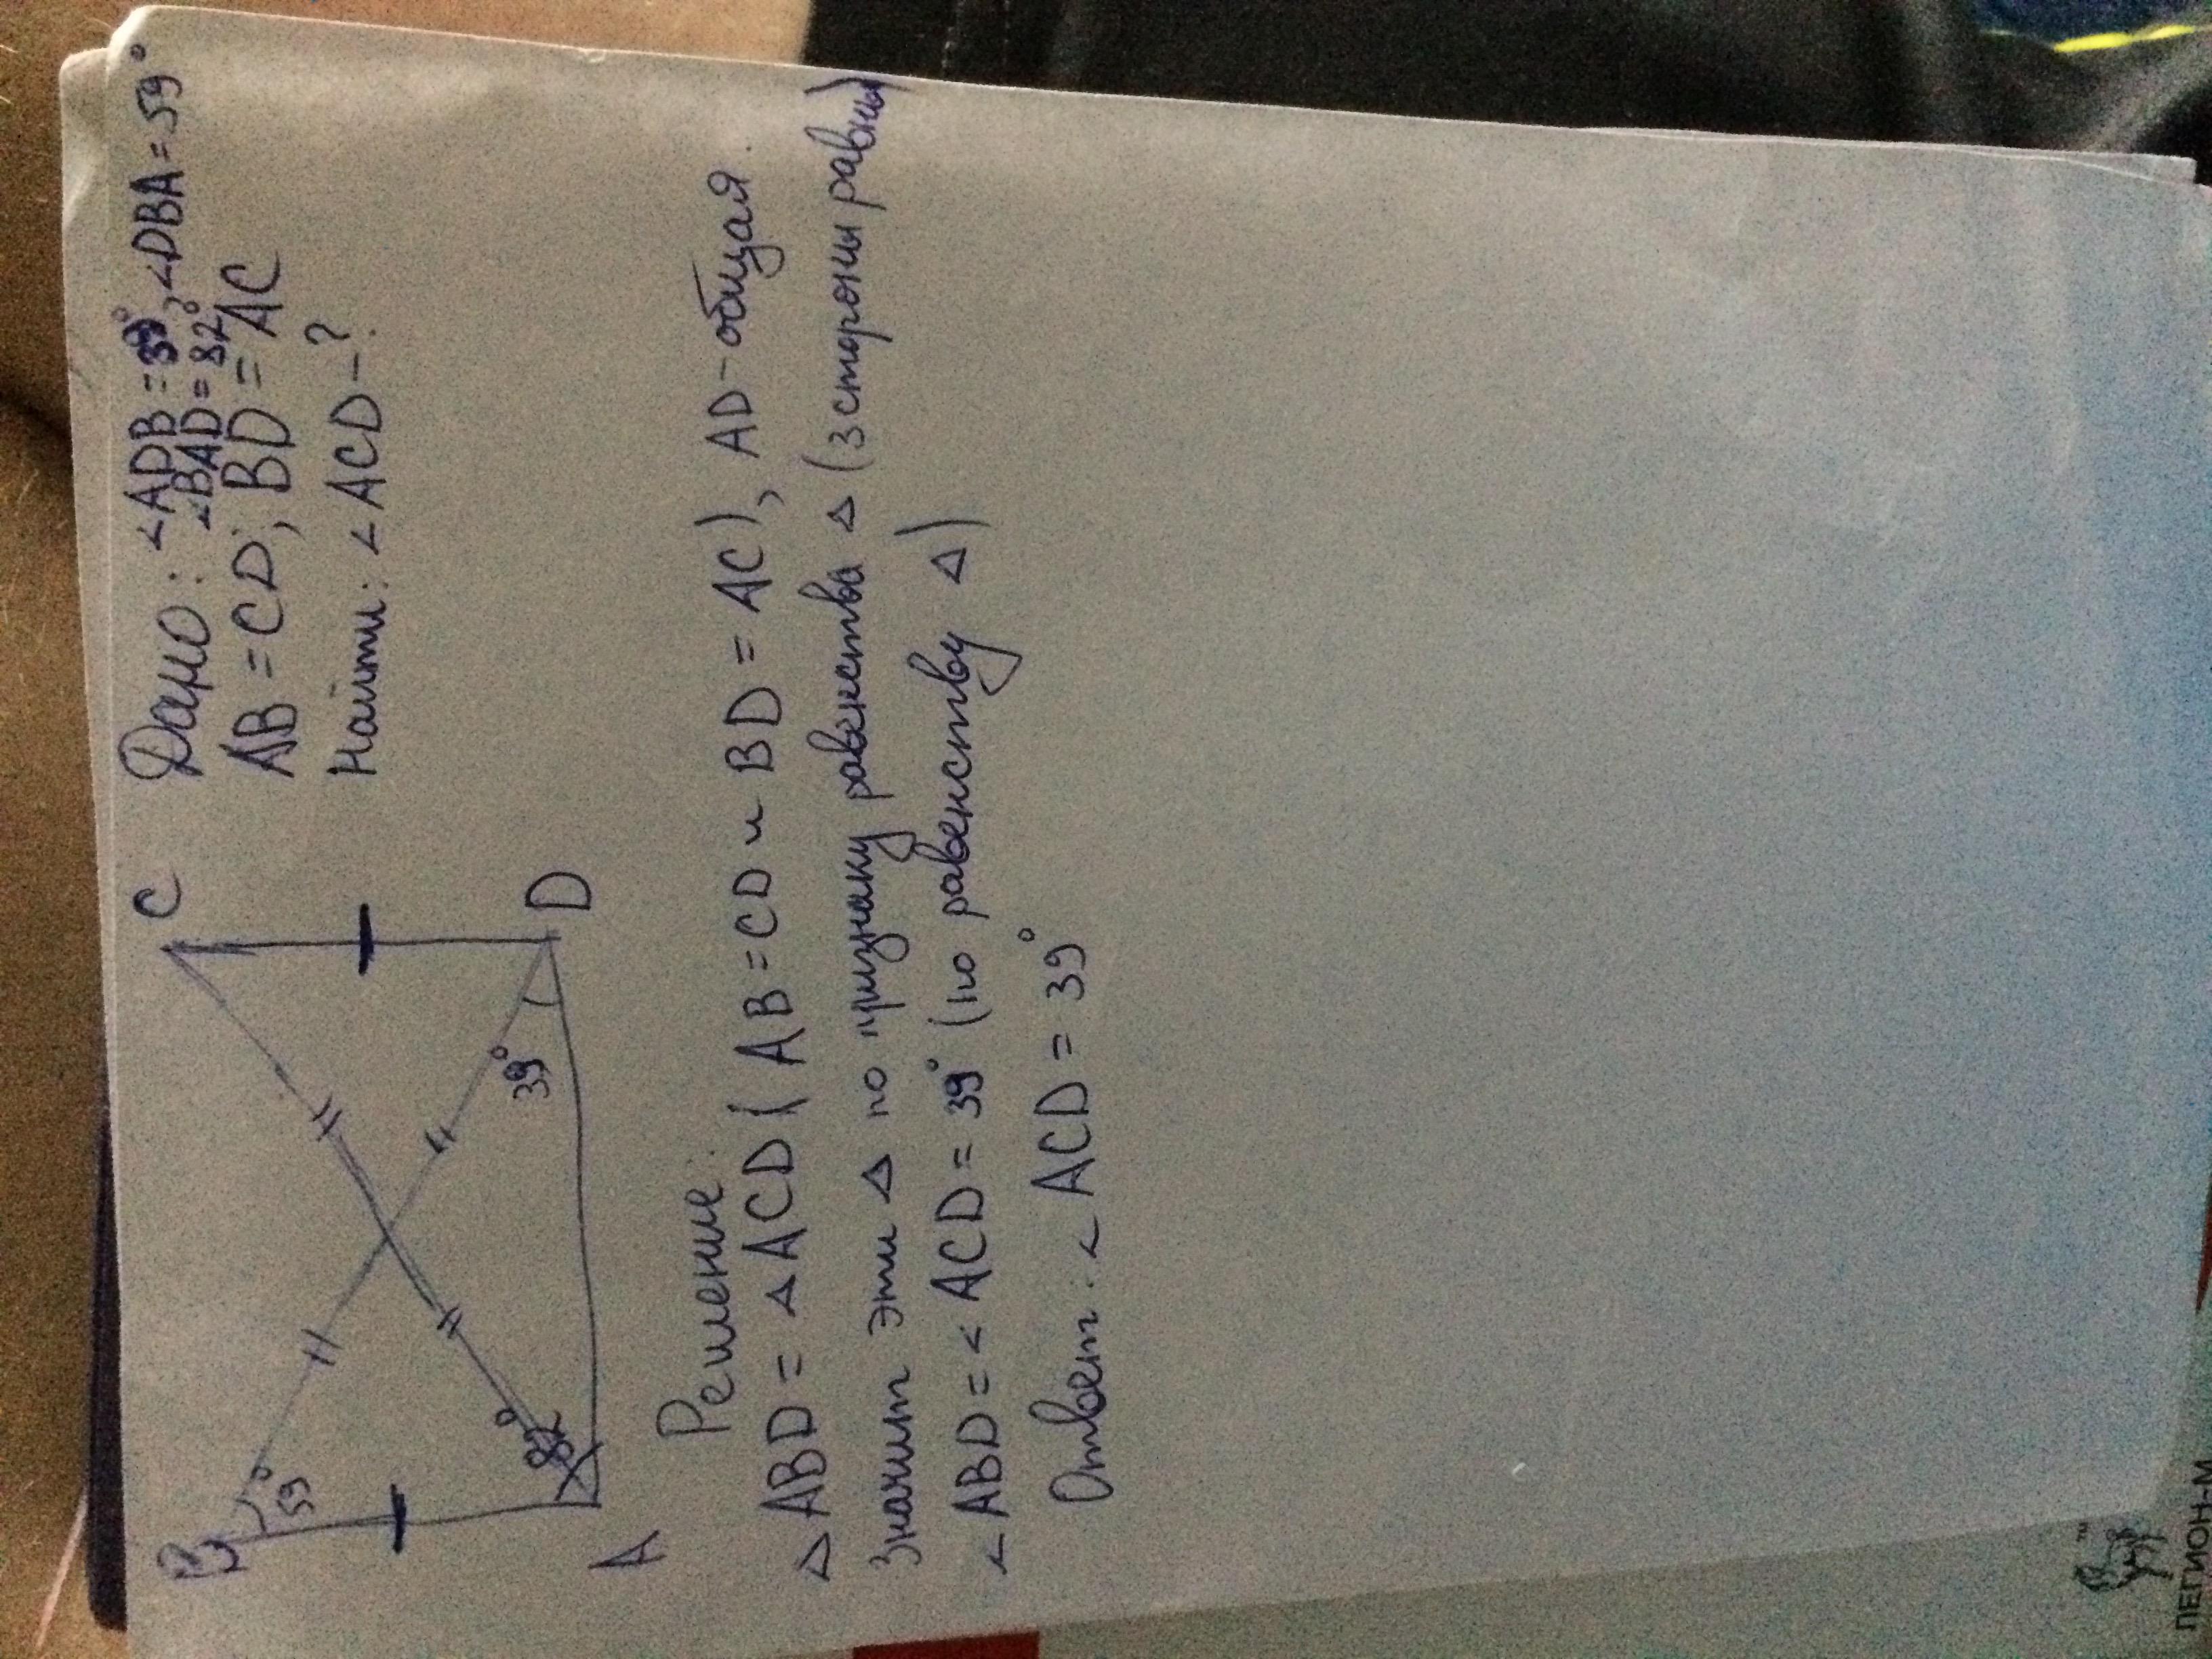 Дано: ∠ADB = 39°, ∠DBA = 59°
∠BAD = 82°
AB = CD, BD = AC
Найти: ∠ACD - ?
B
C
59°
39°
82°
A
D
Решение:
△ABD = △ACD (AB = CD и BD = AC), AD - общая
Значит эти △ по признаку равенства △ (3 стороны равны)
∠ABD = ∠ACD = 39° (по равенству △)
Ответ: ∠ACD = 39°
ЛЕГИОН-М
TM